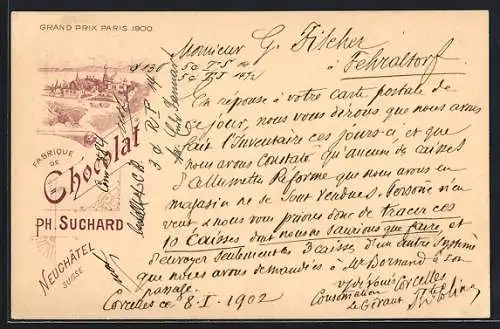 GRAND PRIX PARIS 1900
FABRIQUE
DE
Chocolat
PH. SUCHARD
NEUCHÂTEL
SUISSE
Monsieur G. Fischer
à Fehraltorf
En réponse à votre carte postale de
ce jour, nous vous dirons que nous avons
fait l'Inventaire ces jours-ci et que
nous avons constaté qu'aucune caisses
d'allumettes Réforme que nous avons en
magasin ne se sont vendues. Personne n'en
veut, nous vous prions donc de tracer ces
10 Caisses dont nous ne saurions que faire, et
d'envoyer seulement 3 caisses d'un autre système
que nous avons demandées à Mr Bornand à son
passage.
Corcelles
Consommation
Le Gérant
Corcelles ce 8-I-1902